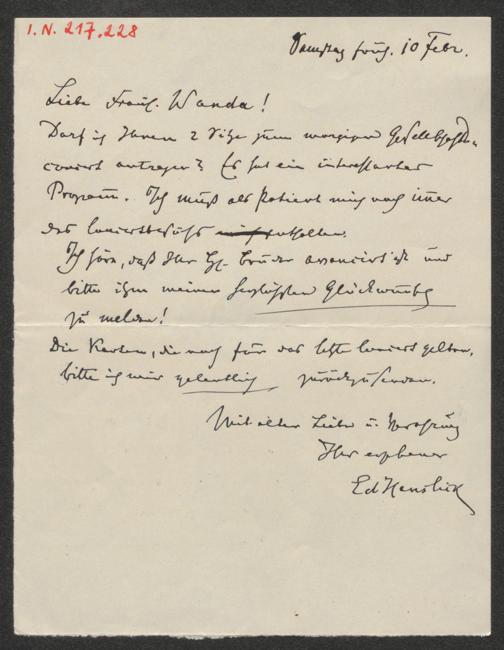 I. N. 217.228
Samstag früh. 10 Febr.
Liebe Fräul. Wanda!
Darf ich Ihnen 2 Sitze zum morgigen Gesellschafts-
concert antragen? Es hat ein interessantes
Programm. Ich muß als Patient mich noch immer
des Concertbesuchs enthalten.
Ich höre, daß Ihr H. Bruder avancirt ist und
bitte ihm meinen herzlichsten Glückwunsch
zu melden!
Die Karten, die noch für das letzte Concert gelten,
bitte ich mir gelegentlich zurückzusenden.
Mit alter Liebe u. Verehrung
Ihr ergebener
Ed Hanslick